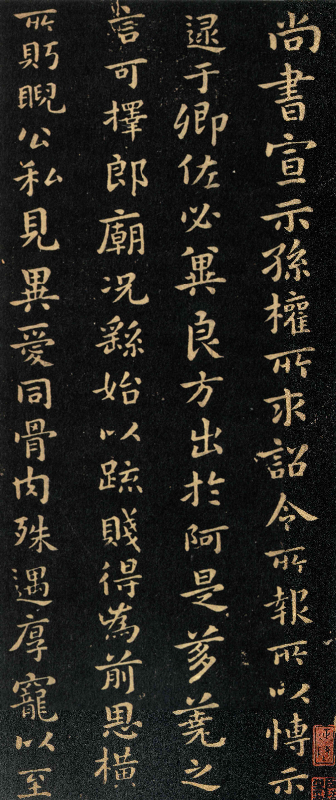 尚書宣示孫權所求詔令所報所以愽示
逮于卿佐必兾良方出於阿是芻蕘之
言可擇郎廟況繇始以疏賤得為前恩橫
所眄睨公私見異愛同骨肉殊遇厚寵以至